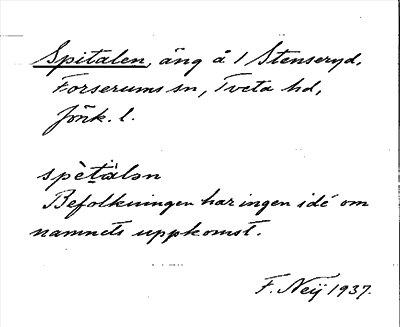 Spitalen, äng å 1 Stenseryd,
Forserums sn, Tveta hd,
Jönk. l.
spètä̀lən
Befolkningen har ingen idé om
namnets uppkomst.
F. Neij 1937.